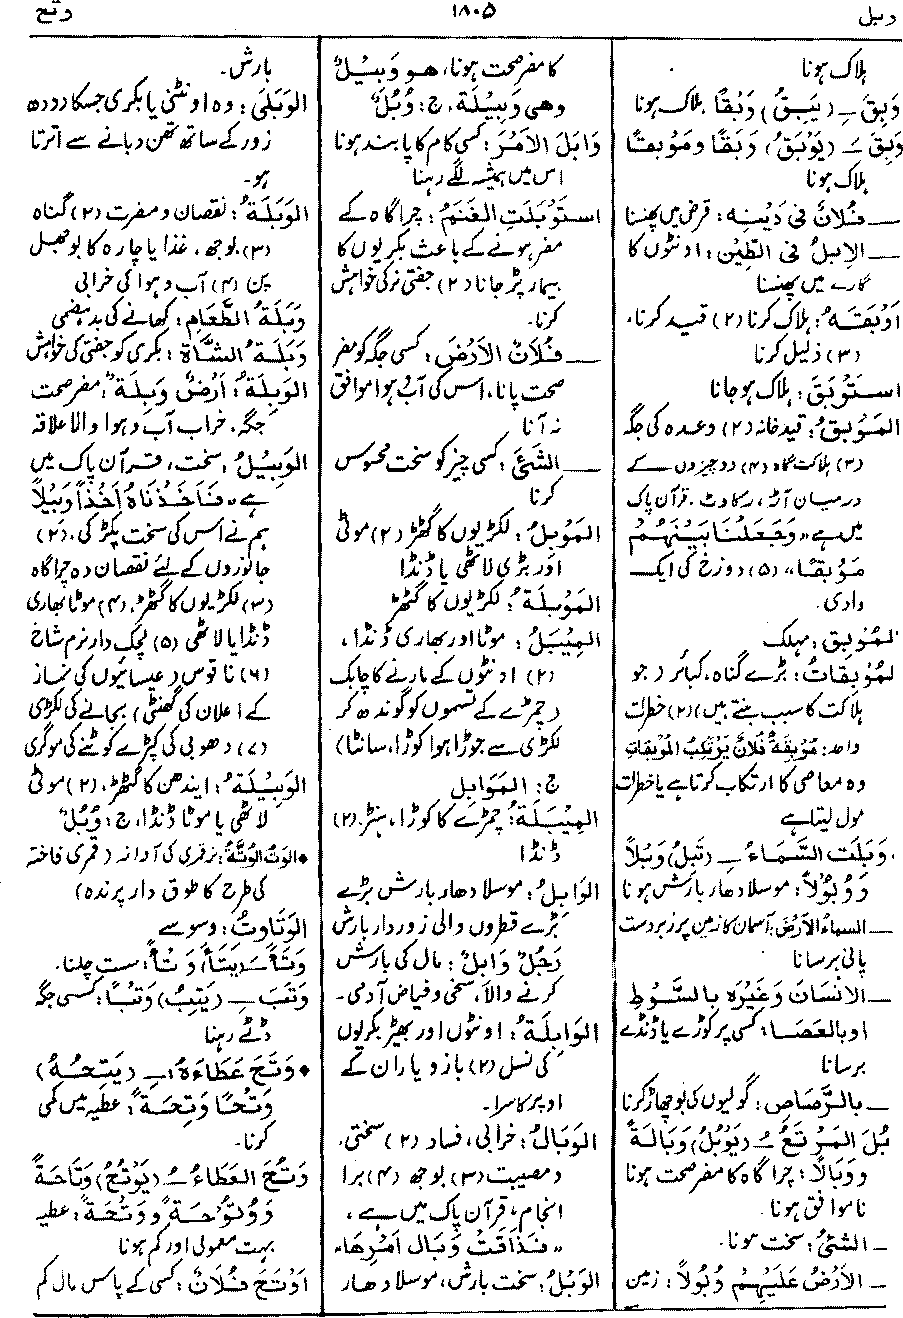 وبل
۱۸۰۵
وتح
ہلاک ہونا
وَبِقَ ــِ (یَبِقُ) وَبْقًا: ہلاک ہونا
وَبِقَ ــَ (یَوْبَقُ) وَبَقًا ومَوْبِقًا
ہلاک ہونا
ــ فُلَانٌ فی دَیْنِه: قرض میں پھنسنا
ــ الإبِلُ فی الطِّیْن: اونٹوں کا
گارے میں پھنسنا
اَوْبَقَهٗ: ہلاک کرنا (۲) قید کرنا،
(۳) ذلیل کرنا
اسْتَوْبَقَ: ہلاک ہوجانا
المَوْبِقُ: قیدخانہ (۲) وعدہ کی جگہ
(۳) ہلاکت گاہ (۴) دو چیزوں کے
درمیان آڑ، رکاوٹ۔ قرآن پاک
میں ہے «وَجَعَلْنَا بَیْنَهُمْ
مَوْبِقًا» (۵) دوزخ کی ایک
وادی۔
المُوْبِق: مہلک
لمُوْبِقَاتُ: بڑے گناہ، کبائر (جو
ہلاکت کا سبب بنتے ہیں) (۲) خطرات
واحد: مُوْبِقَةٌ فُلَانٌ یَرْتَکِبُ المُوْبِقَاتِ
وہ معاصی کا ارتکاب کرتا ہے یا خطرات
مول لیتا ہے
وَبَلَتِ السَّمَاءُ ــِ (تَبِلُ) وَبْلًا
وَوُبُوْلًا: موسلا دھار بارش ہونا
ــ السماءُ الأرْضَ: آسمان کا زمین پر زبردست
پانی برسانا
ــ الإنْسَانَ وَغَیْرَهٗ بِالسَّوْطِ
اوبالعَصَا: کسی پر کوڑے یا ڈنڈے
برسانا
ــ بالرَّصَاصِ: گولیوں کی بوچھاڑ کرنا
بُلَ المَرْتَعُ ــُ (یَوْبُلُ) وَبَالَةً
ووَبَالًا: چراگاہ کا مضر صحت ہونا
ناموافق ہونا۔
ــ الشئُ: سخت ہونا۔
ــ الأرْضُ عَلَیْهِمْ وُبُوْلًا: زمین
کا مضر صحت ہونا، هو وَبِیْلٌ
وهی وَبِیْلَة، ج: وُبُلٌ
وَابَلَ الأمْرَ: کسی کام کا پابند ہونا
اس میں ہمیشہ لگے رہنا
اسْتَوْبَلَتِ الغَنَمُ: چراگاہ کے
مضر ہونے کے باعث بکریوں کا
بیمار پڑ جانا (۲) جفتی نر کی خواہش
کرنا۔
ــ فُلَانٌ الأرْضَ: کسی جگہ کو مضر
صحت پانا، اس کی آب و ہوا موافق
نہ آنا
ــ الشَّئَ: کسی چیز کو سخت محسوس
کرنا
المَوْبِلُ: لکڑیوں کا گٹھڑ (۲) موٹی
اور بڑی لاٹھی یا ڈنڈا
المَوْبِلَةُ: لکڑیوں کا گٹھڑ
المِیْبَلُ: موٹا اور بھاری ڈنڈا،
(۲) اونٹوں کے مارنے کا چابک
(چمڑے کے تسموں کو گوندھ کر
لکڑی سے جوڑا ہوا کوڑا، سانٹا)
ج: المَوَابِل
المِیْبَلَةُ: چمڑے کا کوڑا، ہنٹر (۲)
ڈنڈا
الوَابِلُ: موسلا دھار بارش بڑے
بڑے قطروں والی زوردار بارش
رَجُلٌ وَابِلٌ: مال کی بارش
کرنے والا، سخی و فیاض آدمی۔
الوَابِلَةُ: اونٹوں اور بھیڑ بکریوں
کی نسل (۲) بازو یا ران کے
اوپر کا سرا۔
الوَبَالُ: خرابی، فساد (۲) سختی،
ومصیبت (۳) بوجھ (۴) برا
انجام، قرآن پاک میں ہے،
«فَذَاقَتْ وَبَالَ اَمْرِهَا»
الوَبْلُ: سخت بارش، موسلا دھار
بارش۔
الوَبَلٰی: وہ اونٹنی یا بکری جسکا دودھ
زور کے ساتھ تھن دبانے سے اترتا
ہو۔
الوَبَلَةُ: نقصان و مضرت (۲) گناہ
(۳) بوجھ، غذا یا چارہ کا بوجھل
پن (۴) آب و ہوا کی خرابی
وَبَلَةُ الطَّعَامِ: کھانے کی بدہضمی
وَبَلَةُ الشَّاةِ: بکری کو جفتی کی خواہش
الوَبِلَةُ: اَرْضٌ وَبِلَةٌ: مضر صحت
جگہ، خراب آب و ہوا والا علاقہ
الوَبِیْلُ: سخت، قرآن پاک میں
ہے «فَاَخَذْنَاهُ اَخْذًا وَبِیْلًا
ہم نے اس کی سخت پکڑ کی، (۲)
جانوروں کے لئے نقصان دہ چراگاہ
(۳) لکڑیوں کا گٹھڑ، (۴) موٹا بھاری
ڈنڈا یا لاٹھی (۵) لچک دار نرم شاخ
(۶) ناقوس (عیسائیوں کی نماز
کے اعلان کی گھنٹی) بجانے کی لکڑی
(۷) دھوبی کی کپڑے کوٹنے کی موگری
الوَبِیْلَةُ: ایندھن کا گٹھڑ، (۲) موٹی
لاٹھی یا موٹا ڈنڈا، ج: وُبُلٌ
• الوَتُ الوَتَّةُ: نرقمری کی آواز (قمری فاختہ
کی طرح کا طوق دار پرندہ)
الوَتَاوِتُ: وسوسے
وَتَأَ ــَ (یَتَأُ) وَتْأً: سست چلنا۔
وَتَبَ ــِ (یَتِبُ) وَتْبًا: کسی جگہ
ڈٹے رہنا
• وَتَحَ عَطَاءَهٗ ــِ (یَتِحُهٗ)
وَتْحًا وَتِحَةً: عطیہ میں کمی
کرنا۔
وَتُحَ العَطَاءُ ــُ (یَوْتُحُ) وَتَاحَةً
وَوُتُوْحَةً وَوَتْحَةً: عطیہ
بہت معمولی اور کم ہونا
اَوْتَحَ فُلَانٌ: کسی کے پاس مال کم